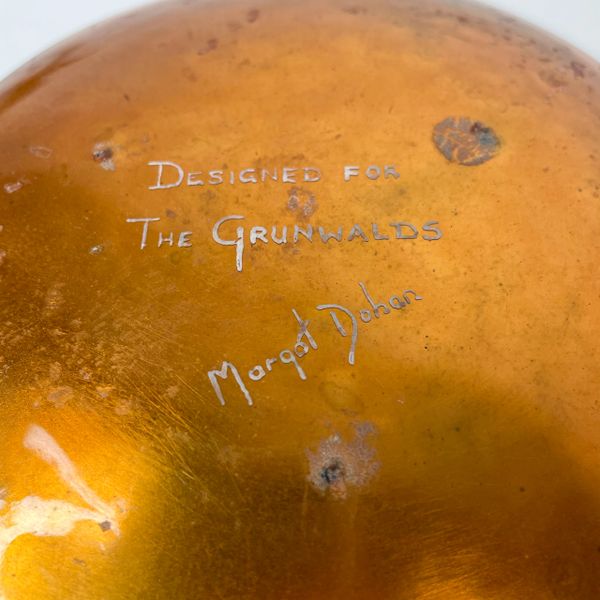 DESIGNED FOR
THE GRUNWALDS
Margot Dohan